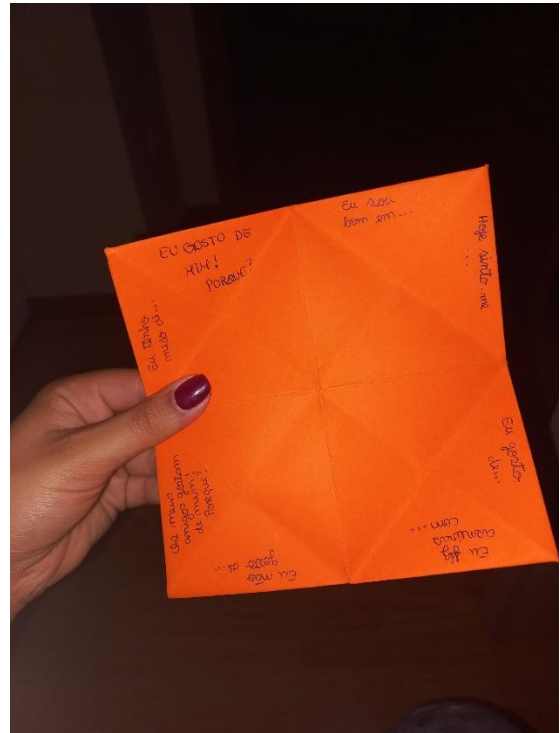 EU GOSTO DE
MIM!
PORQUE?
Eu sou
bom em...
Hoje sinto-me
...
Eu gosto
de...
Eu fiz
asneiras
com...
Eu não
gosto de...
Os meus
amigos gostam
de mim
Porquê?
Eu tenho